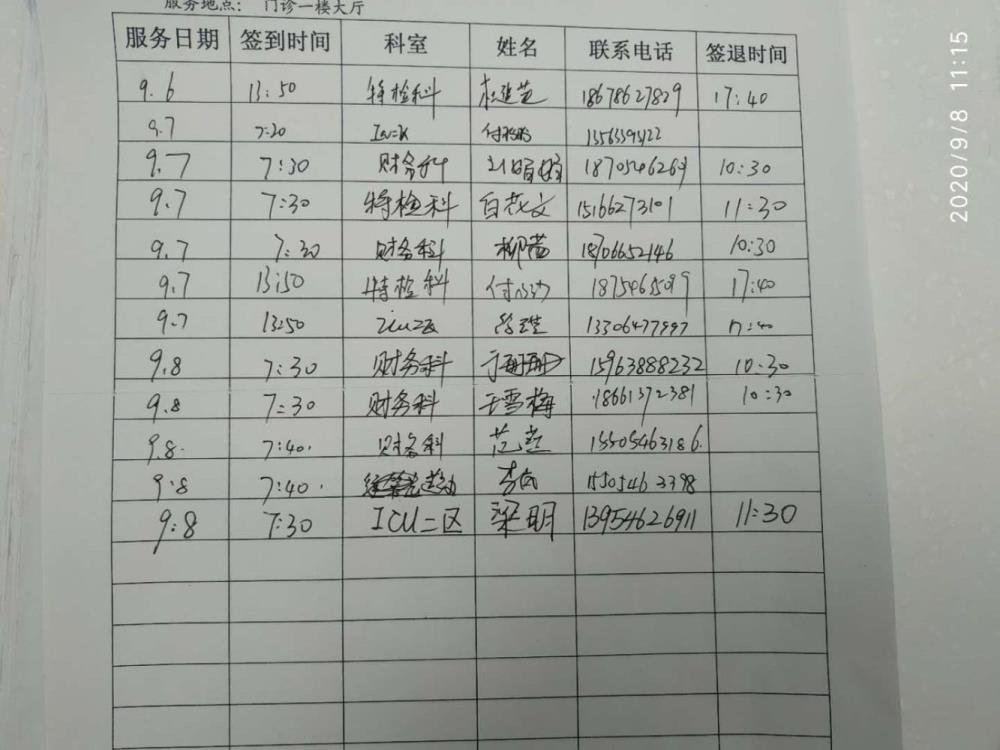 服务地点： 门诊一楼大厅
服务日期 签到时间 科室 姓名 联系电话 签退时间
9.6 13:50 特检科 18678627829 17:40
9.7 7:20
9.7 7:30 财务科 1870546269 10:30
9.7 7:30 特检科 白茂文 15166273101 11:30
9.7 7:30 财务科 柳茜 18706652146 10:30
9.7 13:50 特检科 17:40
9.7 13:50 13306477997 17:40
9.8 7:30 财务科 于珊珊 15963888232 10:30
9.8 7:30 财务科 王雪梅 18661372381 10:30
9.8. 7:40. 财务科 15505463186.
9.8 7:40. 李 15505463398
9:8 7:30 ICU二区 梁明 13954626911 11:30
2020/9/8 11:15